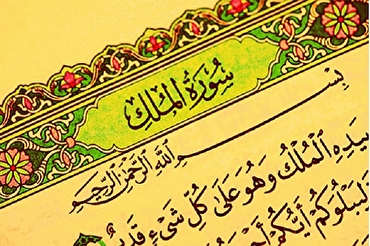 سُورَةُ المُلْكِ
بِسْمِ اللَّهِ الرَّحْمَٰنِ الرَّحِيمِ
بِيَدِهِ المُلْكُ وَهُوَ عَلَىٰ كُلِّ شَيْءٍ قَدِيرٌ
لِيَبْلُوَكُمْ أَيُّكُمْ أَحْسَنُ